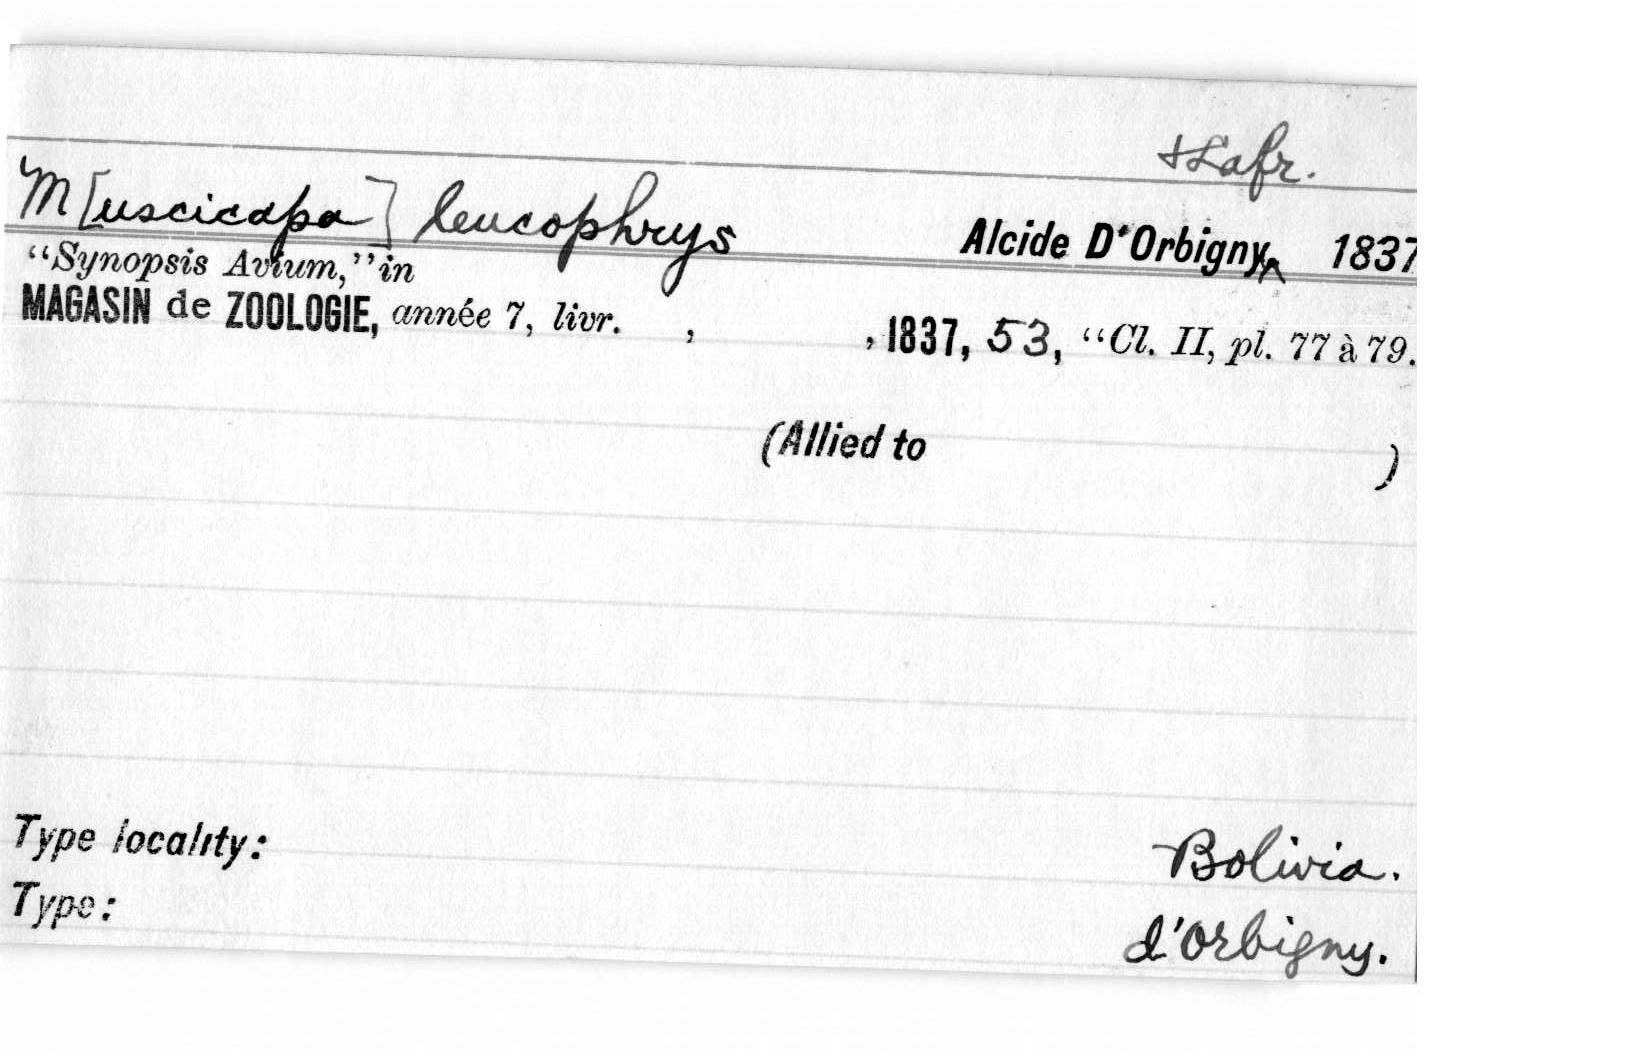 & Lafr.
M[uscicapa] leucophrys Alcide D'Orbigny^ 1837
“Synopsis Avium,” in
MAGASIN de ZOOLOGIE, année 7, livr. , , 1837, 53, “Cl. II, pl. 77 à 79.
(Allied to )
Type locality: Bolivia.
Type: d'Orbigny.